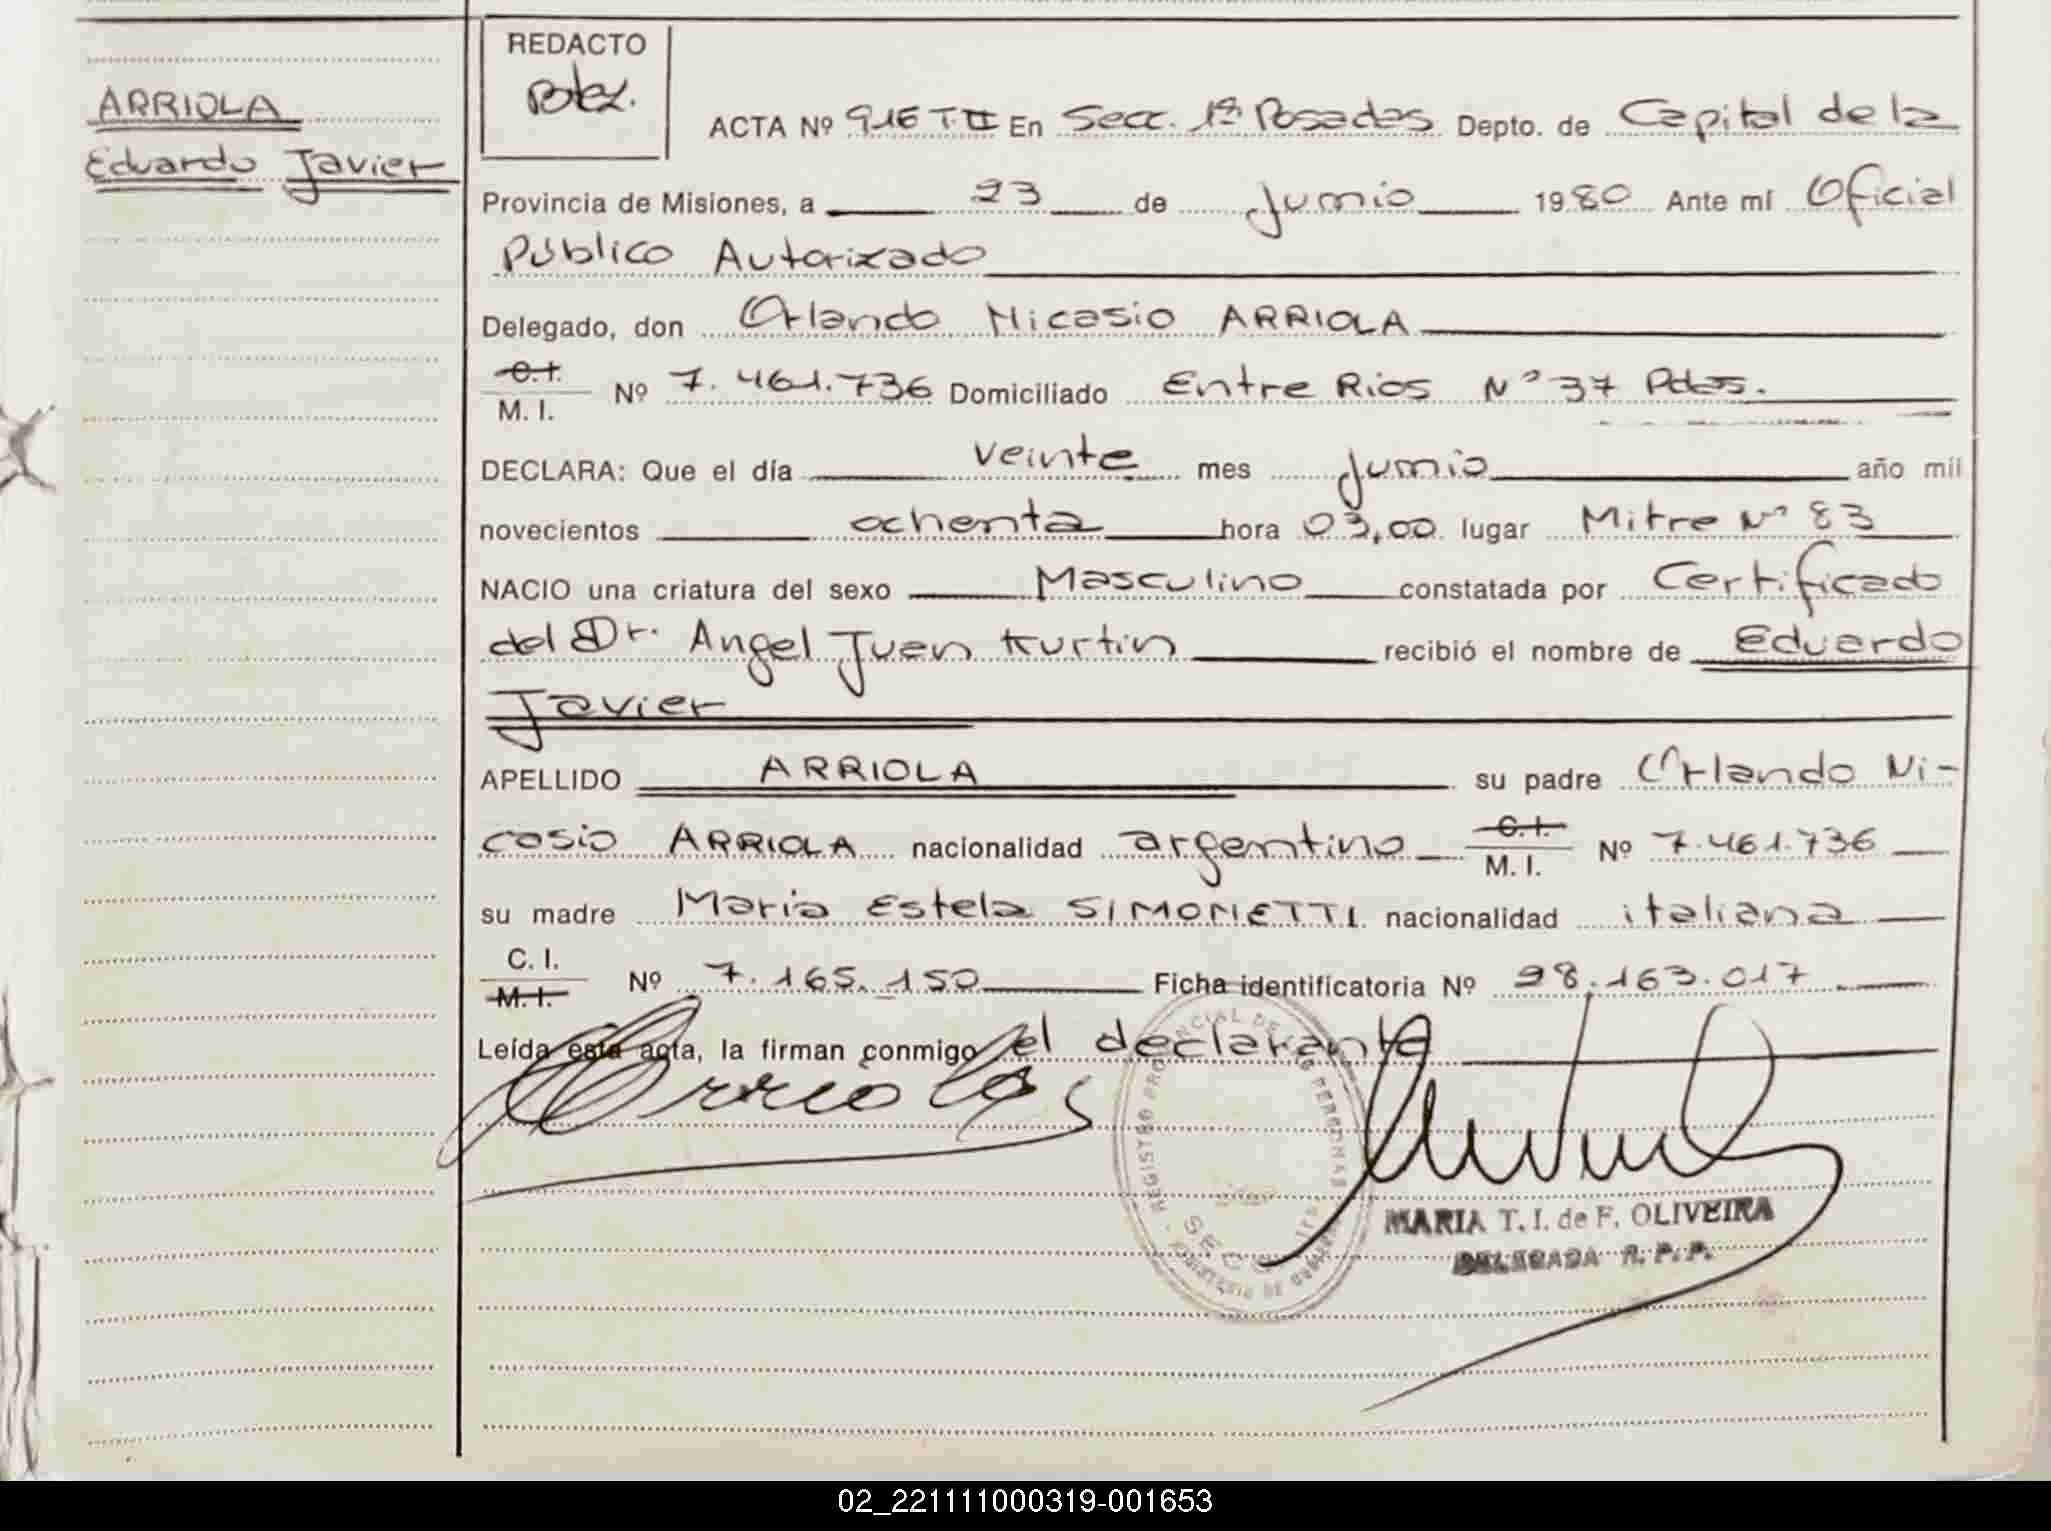 ARRIOLA
Eduardo Javier
REDACTO
ACTA Nº 916 T II En Secc. 1ª Posadas Depto. de Capital de la
Provincia de Misiones, a 23 de Junio 1980 Ante mí Oficial
Público Autorizado
Delegado, don Orlando Nicasio ARRIOLA
C.I.
M. I. Nº 7.461.736 Domiciliado Entre Rios Nº 37 Pdas.
DECLARA: Que el día veinte mes Junio año mil
novecientos ochenta hora 03,00 lugar Mitre Nº 83
NACIO una criatura del sexo Masculino constatada por Certificado
del Dr. Angel Juan Kurtin recibió el nombre de Eduardo
Javier
APELLIDO ARRIOLA su padre Orlando Ni-
casio ARRIOLA nacionalidad argentino C.I. M. I. Nº 7.461.736
su madre Maria Estela SIMONETTI nacionalidad italiana
C. I.
M. I. Nº 7.165.150 Ficha identificatoria Nº 28.163.017
Leída esta acta, la firman conmigo el declarante
REGISTRO PROVINCIAL DE LAS PERSONAS
MARIA T. I. de F. OLIVEIRA
DELEGADA R. P. P.
02_221111000319-001653